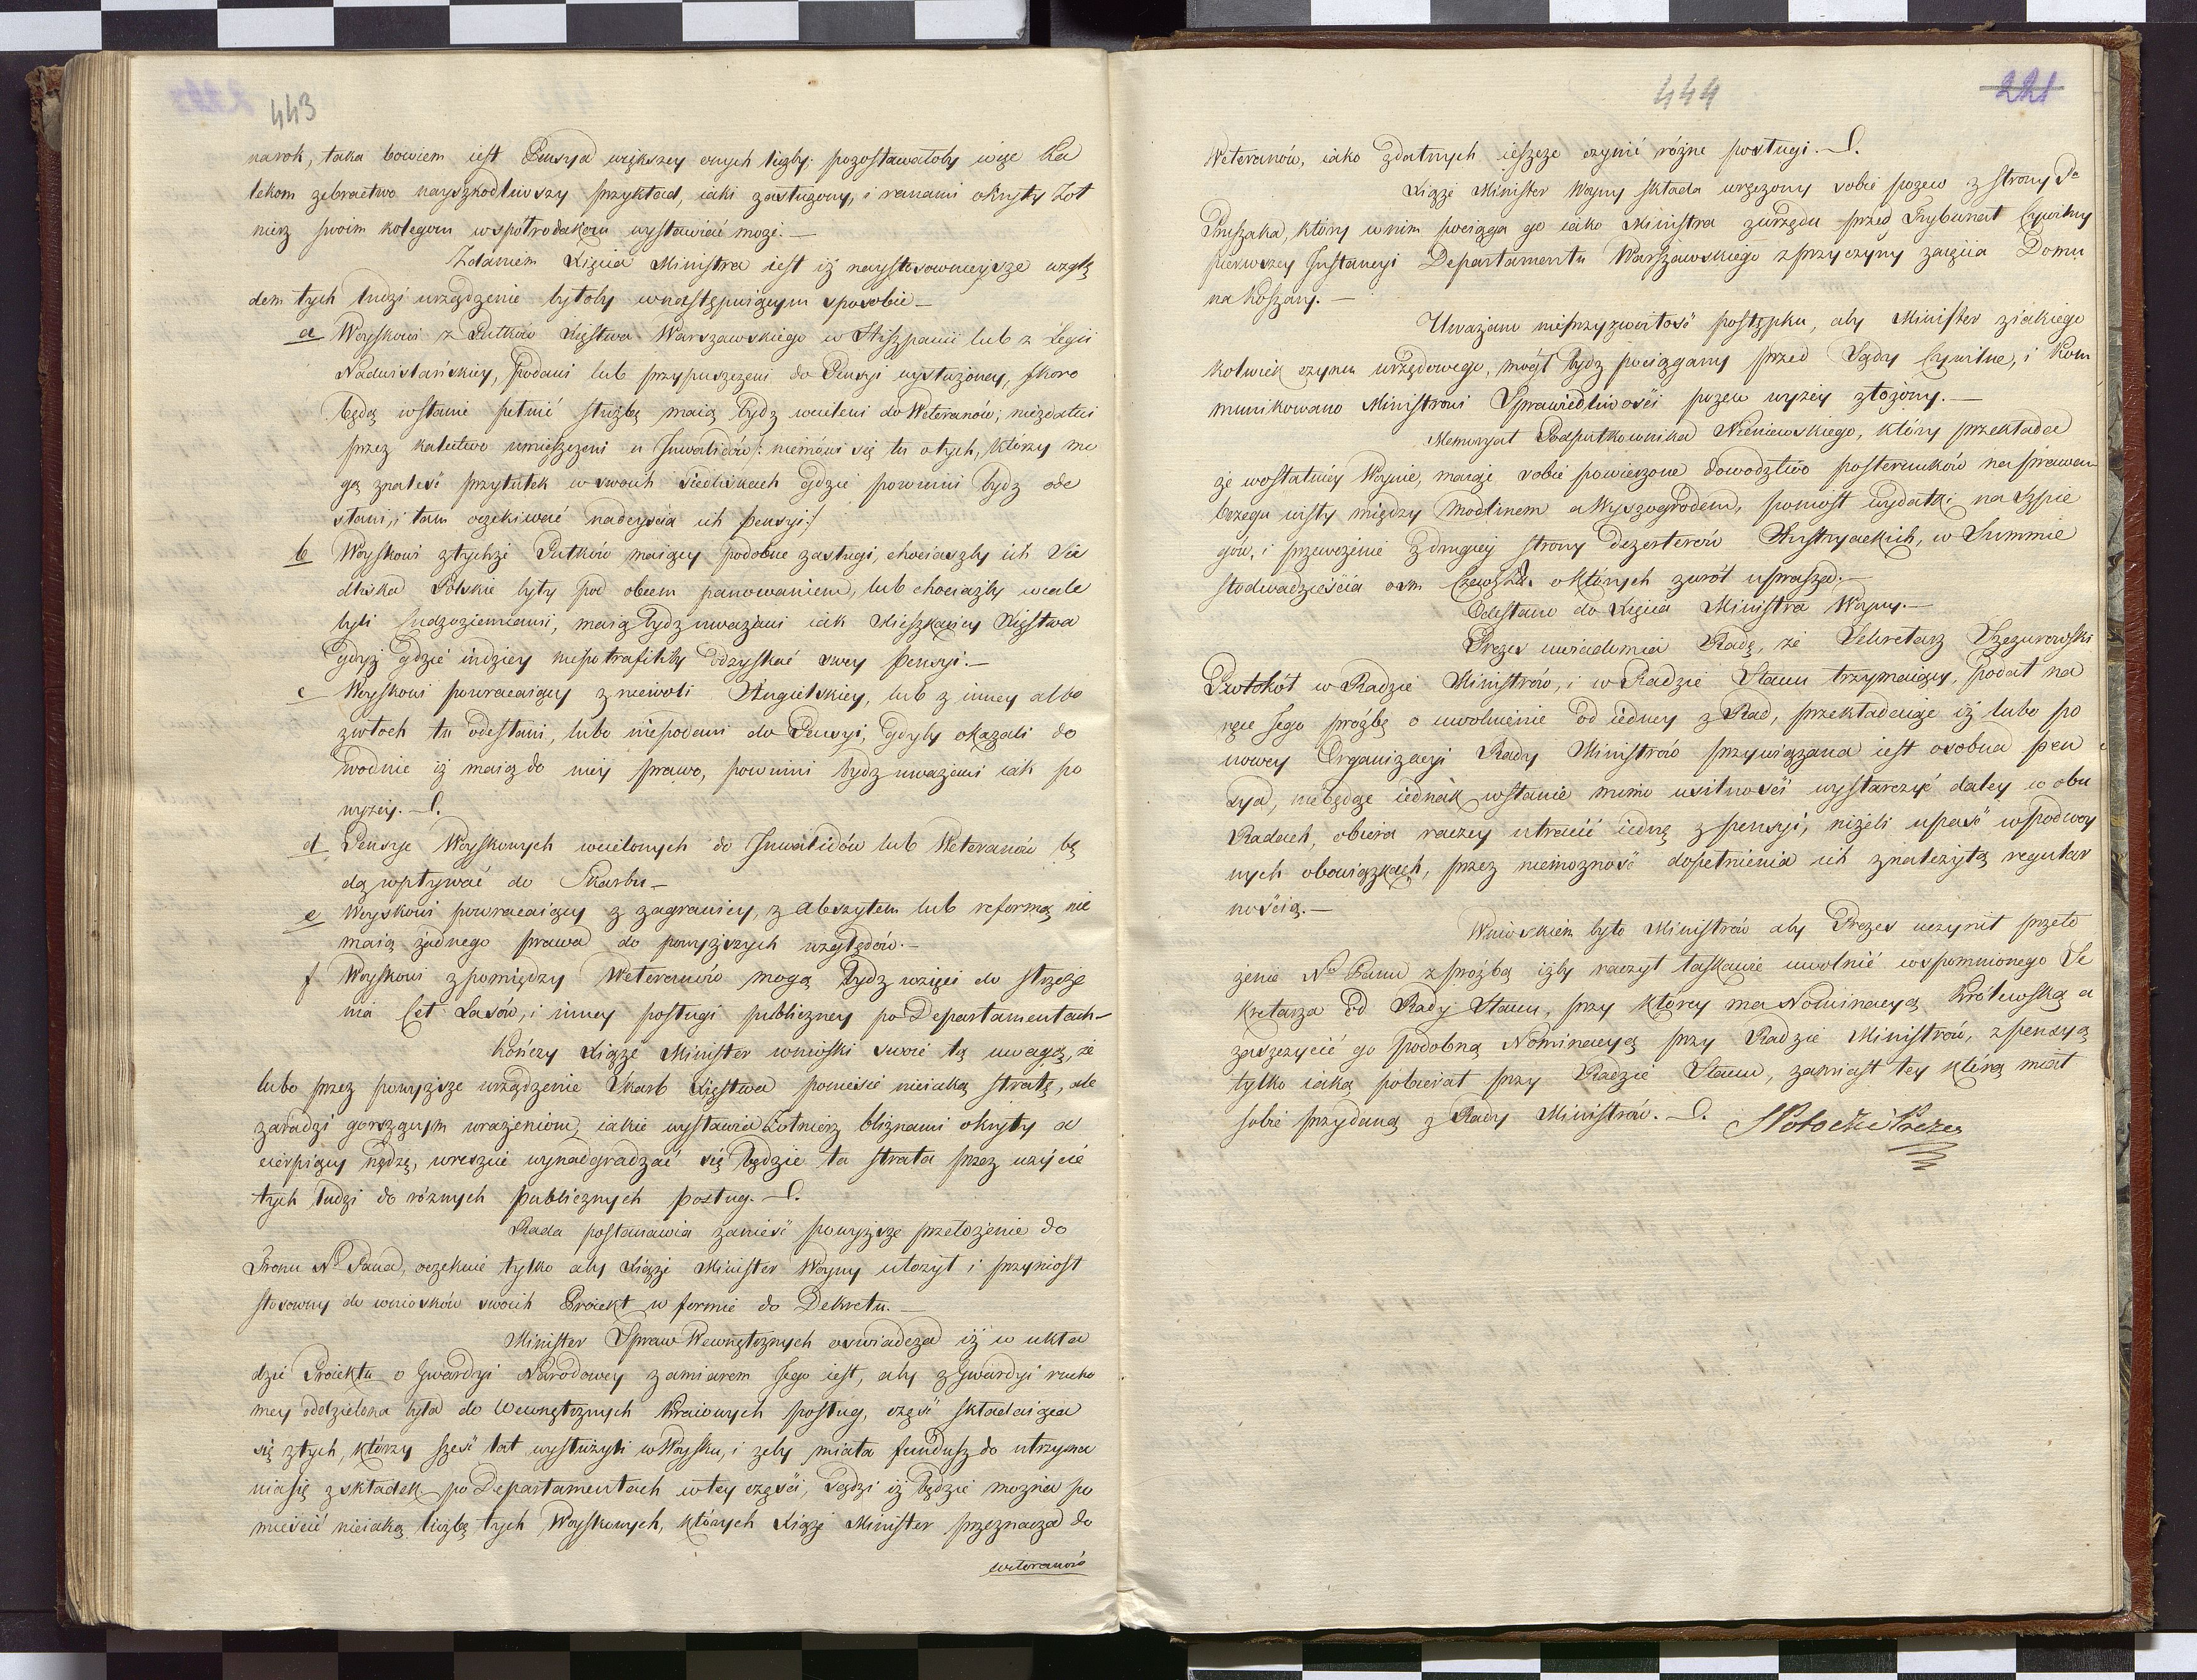 443
na rok, taka bowiem iest Pensya większey onych liczby: pozostawałoby więc Ka
lekom żebractwo nayszkodliwszy przykład, iaki zasłużony, i ranami okryty Żoł
nierz swoim kolegom współrodakom wystawić może.—
Zdaniem Xięcia Ministra iest iż naystosownieysze wzglę
dem tych ludzi urządzenie byłoby w następuiącym sposobie—
a Woyskowi z Pułków Xięstwa Warszawskiego w Hiszpanii lub z Legii
Nadwiślańskiey, podani lub przypuszczeni do Pensyi wysłużoney, skoro
będą wstanie pełnić służbę maią bydź wcieleni do Weteranów; niezdatni
przez kalectwo umieszczeni u Inwalidów/: niemówi się tu o tych, którzy mo
gą znaleść przytułek w swoich siedliskach gdzie powinni bydź ode
słani, i tam oczekiwać nadeyścia ich pensyi:/
b Woyskowi z tychże Pułków maiący podobne zasługi, chociaszby ich Sie
dliska Polskie były pod obcem panowaniem, lub chociażby wcale
byli Cudzoziemcami, maią bydź uważani iak Mieszkańcy Xięstwa
gdyż gdzie indziey niepotrafiliby odzyskać swey pensyi.—
c Woyskowi powracaiący z niewoli Angielskiey, lub z inney albo
zwłoch tu odesłani, lubo niepodani do Pensyi, gdyby okazali do
wodnie iż maią do niey prawo, powinni bydź uważani iak po
wyżey.—
d Pensye Woyskowych wcielonych do Inwalidów lub Weteranów bę
dą wpływać do Skarbu—
e Woyskowi powracaiący z zagranicy, z Abszytem lub reformą nie
maią żadnego prawa do powyższych względów.—
f Woyskowi z pomiędzy Weteranów mogą bydź wzięci do strzeże
nia Ceł Lasów, i inney posługi publiczney po Departamentach—
Kończy Xiąże Minister wnioski swoie tą uwagą, że
lubo przez powyższe urządzenie Skarb Xięstwa poniesie nieiaką stratę, ale
zaradzi gorszącym wrażeniom, iakie wystawia Żołnierz bliznami okryty a
cierpiący nędzę, wreszcie wynadgradzać się będzie ta strata przez użycie
tych ludzi do różnych publicznych posług.—
Rada postanawia zanieść powyższe przełożenie do
Tronu No Pana, oczekuie tylko aby Xiąże Minister Woyny ułożył i przyniosł
stosowny do wniosków swoich Proiekt w formie do Dekretu.—
Minister Spraw Wewnętrznych oswiadcza iż w ukła
dzie Proiektu o Gwardyi Narodowey zamiarem Jego iest, aby z Gwardyi rucho
mey oddzielona była do Wewnętrznych Kraiowych posług, część składaiąca
się z tych, którzy sześć lat wysłużyli w Woysku, i żeby miała fundusz do utrzyma
nia się z składek po Departamentach w tey części, sądzi iż będzie można po
mieścić nieiaką liczbę tych Woyskowych, których Xiąże Minister przeznacza do
weteranów
444
221
Weteranów, iako zdatnych ieszcze czynić różne posługi.—
Xiąże Minister Woyny składa wręczony sobie pozew z strony Pa
Pruszaka, który w nim pociąga go iako Ministra zurzędu przed Trybunał Cywilny
pierwszey Instancyi Departamentu Warszawskiego z przyczyny zaięcia Domu
na Koszary.—
Uważano nieprzyzwoitość postępku, aby Minister z iakiego
kolwiek czynu urzędowego, mógł bydź pociągany przed Sądy Cywilne, i kom
munikowano Ministrowi Sprawiedliwości pozew wyżey złożony.—
Memoryał Podpułkownika Nieniewskiego, który przekłada
że w ostatniey Woynie, maiąc sobie powierzone dowodztwo posterunków na prawem
brzegu wisły między Modlinem a Wyszogrodem, poniosł wydatki na Szpie
gów, i przewożenie z drugiey strony dezerterów Austryackich, w Summie
stodwadzieścia osm Czerw: Zł: o których zwrót uprasza.—
Odesłano do Xięcia Ministra Woyny.—
Prezes uwiadomia Radę, że Sekretarz Szczurowski
Protokół w Radzie Ministrów, i w Radzie Stanu trzymaiący, podał na
ręce Jego proźbę o uwolnienie od iedney z Rad, przekładaiąc iż lubo po
nowey Organizacyi Rady Ministrów przywiązana iest osobna pen
sya, niebędąc iednak wstanie mimo usilności wystarczyć daley w obu
Radach, obiera raczey utracić iedną z pensyi, niżeli upaść w podwoy
nych obowiązkach, przez niemożność dopełnienia ich z należytą regular
nością.—
Wnioskiem było Ministrów aby Prezes uczynił przeło
żenie No Panu z proźbą iżby raczył łaskawie uwolnić wspomnionego Se
kretarza od Rady Stanu, przy którey ma Nominacyą Królewską a
zaszczycić go podobną Nominacyą przy Radzie Ministrów, z pensyą
tylko iaką pobierał przy Radzie Stanu, zamiast tey którą miał
sobie przydaną z Rady Ministrów.— S Potocki Prezes